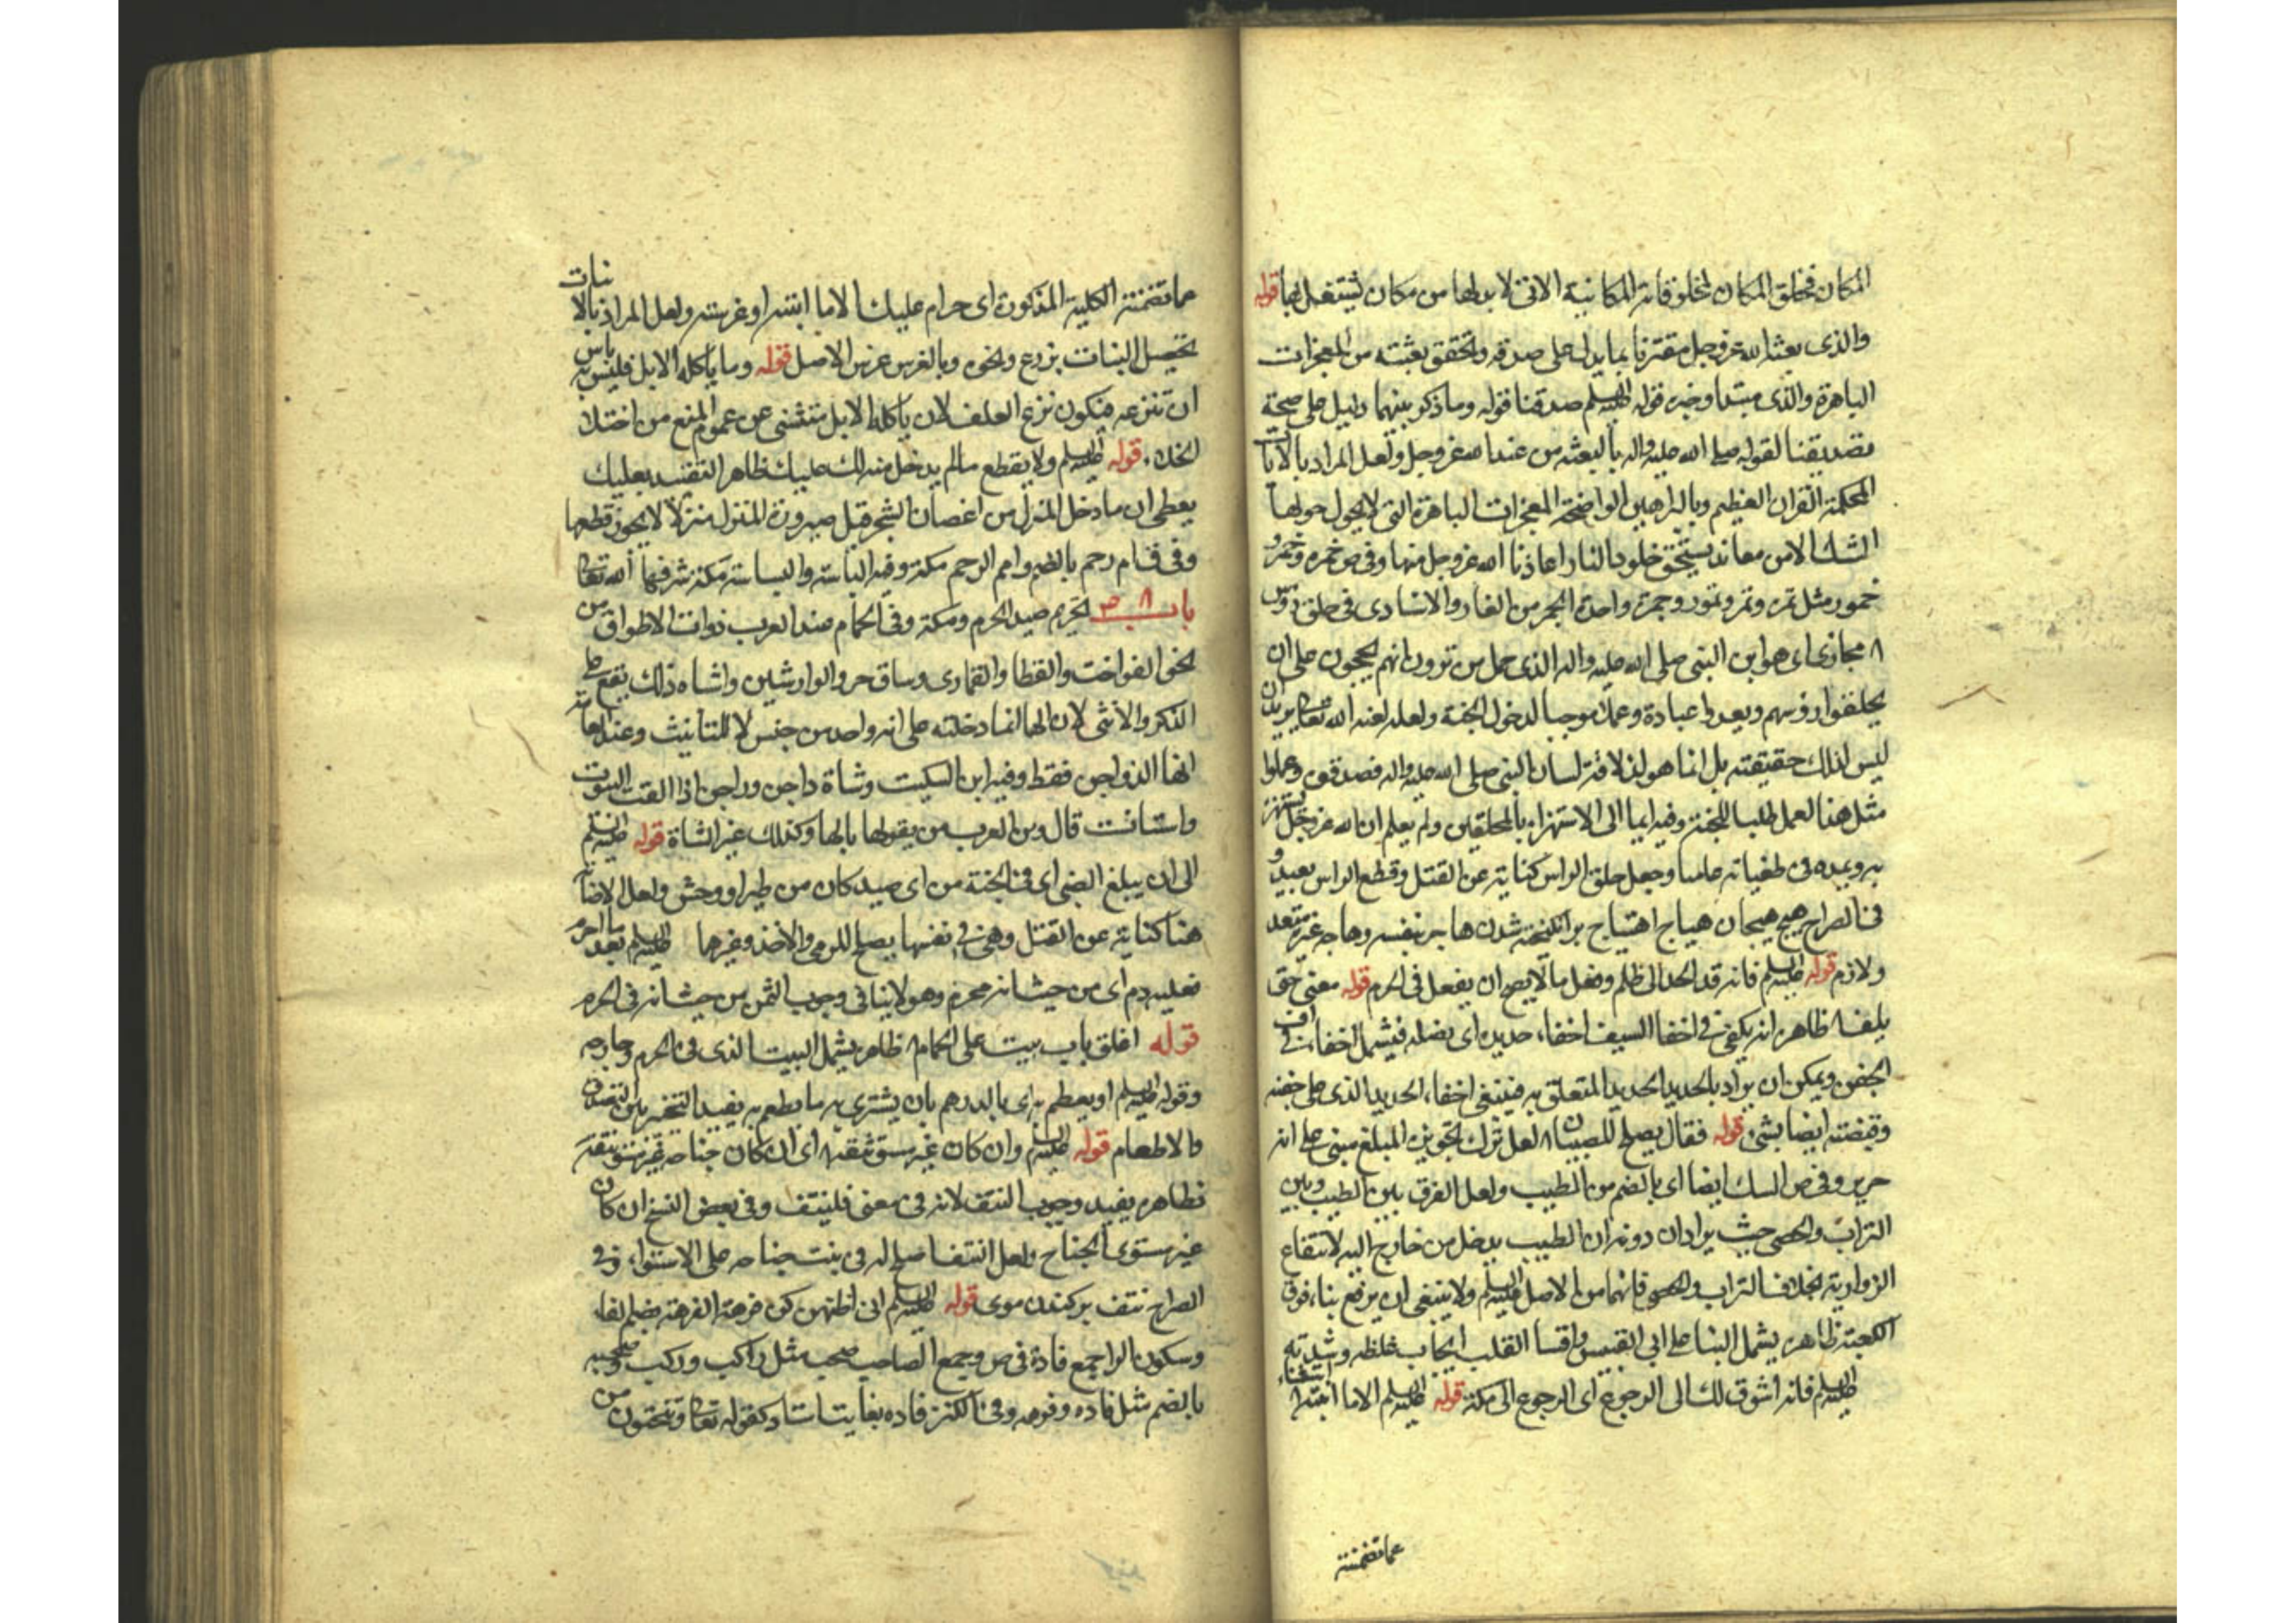 المكان فخلق المكان لمخلوقاته المكانية الاتى لا بد لها من مكان ليشتغل بها قوله
والذى بعثه الله عز وجل مقترنا بما يدل على صدقه وتحقق بعثته من المعجزات
الباهرة والذى مبتدا وخبره قوله عليه السلم صدقنا قوله وما ذكر بينهما دليل على صحة
تصديقنا لقوله صلى الله عليه واله بالبعثه من عند الله عز وجل ولعل المراد بالايات
المحكمة القران العظيم وبالبراهين الواضحة المعجزات الباهرة التى لا يحول حولها
الشك الا من معاند يستحق خلود النار اعاذنا الله عز وجل منها وفى ص خمره وخمر و
خمور مثل تمره وتمر وتمور وجمرة واحدة الجمر من النار والاسنادى فى حلق رؤس
مجازى اى هو ابن النبى صلى الله عليه واله الذى حمل من ترون انهم يحجون على ان
يحلقوا رؤسهم ويعدوا عبادة وعملا موجبا لدخول الجنة ولعله لعنه الله تعالى يريد ان
ليس لذلك حقيقة بل انما هو لذلاقة لسان النبى صلى الله عليه واله فصدقوه وعملوا
مثل هذا العمل طلبا للجنة وفيه ايما الى الاستهزاء بالمحلقين ولم يعلم ان الله عز وجل يستهزئ
به ويمده فى طغيانه عامها وجعل حلق الراس كناية عن القتل وقطع الراس بعيد و
فى الصراح هيج هيجان هياج اهتياج برانكيخته شدن هاج بنفسه وهاجه غيره متعد
ولازم قوله عليه السلم فانه قد الحد الى ظلم وفعل ما لا يصح ان يفعل فى الحرم قوله معنى حتى
يلف ظاهره انه يكفى فى اخفا السيف اخفاء حديده اى نصله فيشمل اخفاءه فى
الجفن ويمكن ان يراد بالحديد الحديد المتعلق به فينبغى اخفاء الحديد الذى على جفنه
وقبضته ايضا بشئ قوله فقال يصلح للصبيان لعل ترك تجويزه المبلغ مبنى على انه
حرير وفى ص السك ايضا اى بالضم من الطيب ولعل الفرق بين الطيب وبين
التراب والحصى حيث يرادان دونه ان الطيب يدخل من خارج اليه لانتفاع
الزوار به بخلاف التراب والحصى فانهما من الاصل عليه السلم ولا ينبغى ان يرفع بناء فوق
الكعبة ظاهره يشمل البنا على ابى القبيس واقسا القلب ايجاب غلظه وشدته
عليه السلم فانه اشوق لك الى الرجوع اى الرجوع الى مكة قوله عليه السلم الا ما انبته استثناء
عما تضمنته
عما تضمنته الكلية المذكورة اى حرام عليك الا ما انبته او غرسته ولعل المراد بالانبات
تحصيل النبات بزرع ونحوه وبالغرس غرس الاصل قوله وما يأكله الابل فليس به باس
ان تنزعه فيكون نزع العلف لان يأكله الابل مستثنى عن عموم المنع من اختلا
الخلا قوله عليه السلم ولا يقطع ما لم يدخل منزلك عليك ظاهر التقييد بعليك
يعطى ان ما دخل المنزل من اغصان الشجر قبل صيرورة المنزل منزلا لا يجوز قطعها
وفى ق ام رحم بالضم وام الرحم مكة وفيه الباسة والبساسة مكة شرفها الله تعالى
باب تحريم صيد الحرم ومكة وفى الحمام عند العرب ذوات الاطواق من
نحو الفواخت والقطا والقمارى وساق حر والوراشين واشباه ذلك يقع على
الذكر والانثى لان الها انما دخلته على انه واحد من جنس لا للتانيث وعند العامة
انها الدواجن فقط وفيه ابن السكيت وشاة داجن وراجن اذا الفت البيوت
واستانست قال ومن العرب من يقولها بالها وكذلك غير الشاة قوله عليه السلم
الى ان يبلغ الظبى اى فى الجنة من اى صيد كان من طير او وحش ولعل الاصابة
هنا كناية عن القتل وهى فى نفسها يصلح للرمى والاخذ وغيرهما عليه السلم بعد ما احرم
فعليه دم اى من حيث انه محرم وهو لا ينافى وجوب الثمن من حيث انه فى الحرم
قوله اغلق باب بيت على الحمام ظاهره يشمل البيت الذى فى الحرم وخارجه
وقوله عليه السلم او يعطم به اى بالدرهم بان يشترى به ما يطعم به يفيد التخير بين التصدق
والاطعام قوله عليه السلم وان كان غير مستو نتفه اى ان كان جناحه غير مستو نتفه
فظاهره يفيد وجوب النتف لانه فى معنى فلينتف وفى بعض النسخ ان كان
غير مستوى الجناح ولعل النتف اصلح له فى بنت جناحه على الاستواء وفى
الصراح نتف بركندن موى قوله عليه السلم انى اظنهن كن فرهة الفرهة بضم الفاء
وسكون الرا جمع فارة فى ص وجمع الصاحب صحب مثل راكب وركب وصحبه
بالضم مثل فاره وفرهه وفى الكنز فاره بغايت استاد كقوله تعالى وتنحتون من